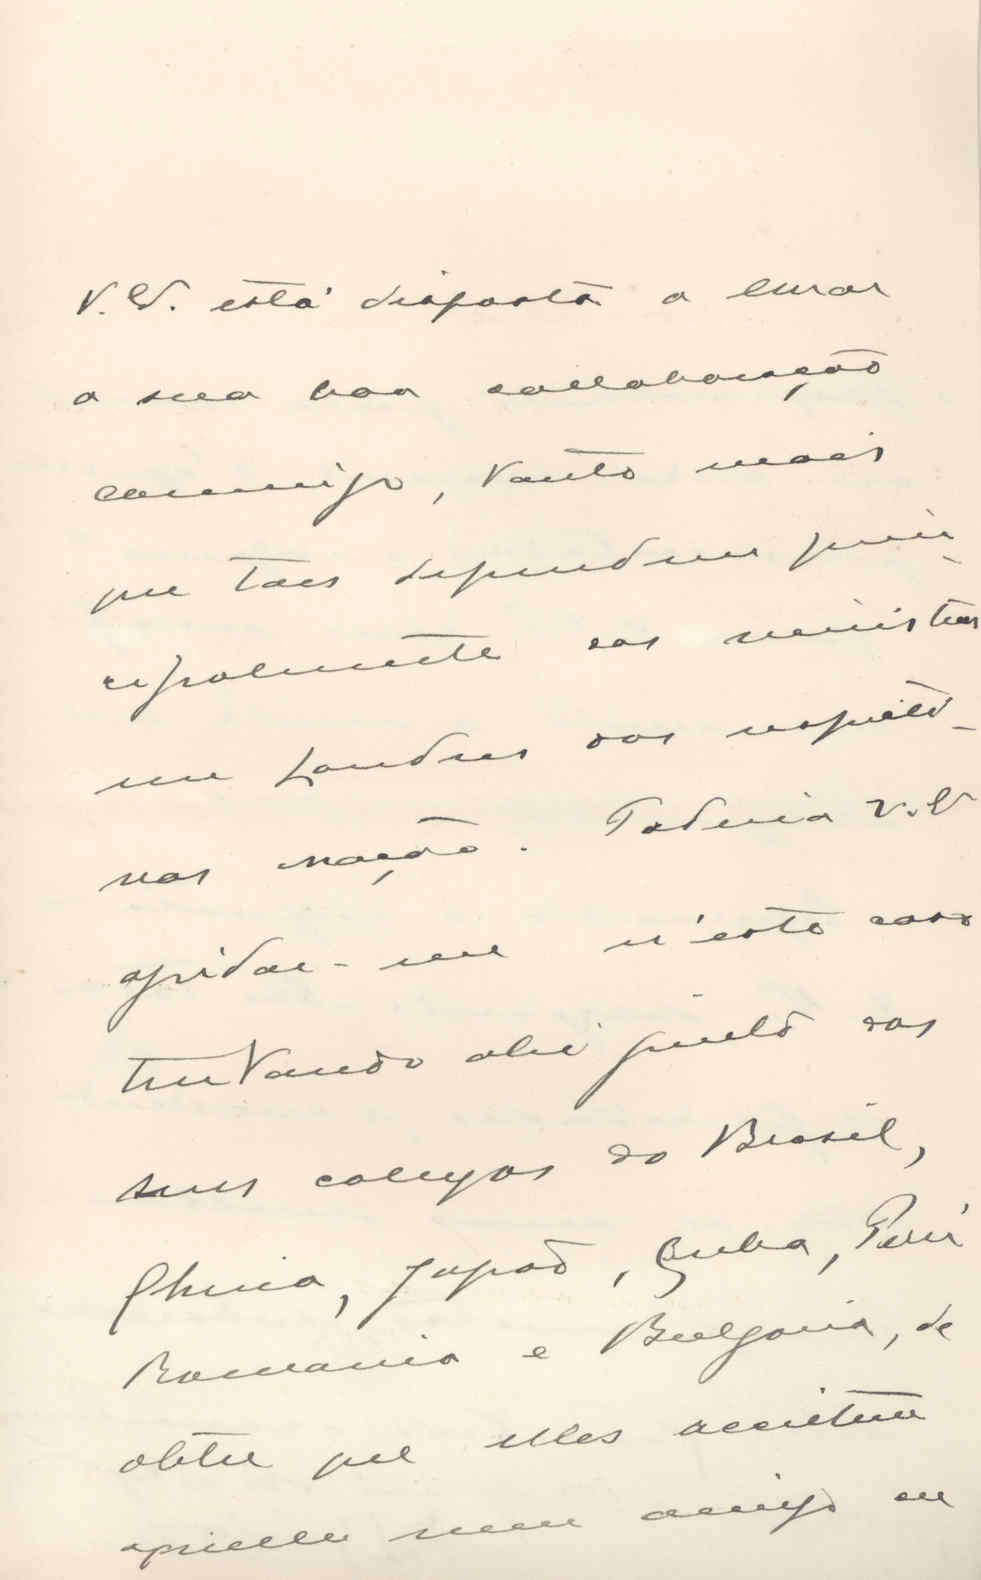 V. Ex. está disposto a
a sua boa collaboração
commigo, tanto mais
que taes dependem prin-
cipalmente dos ministros
em Londres das respecti-
vas nação. Poderia V. Ex.
ajudar-me n'este caso
tentando ahi junto dos
seus collegas do Brasil,
China, Japão, Cuba, Perú
Romania e Bulgaria, de
obter que elles acceitem
aquelle meu amigo ou